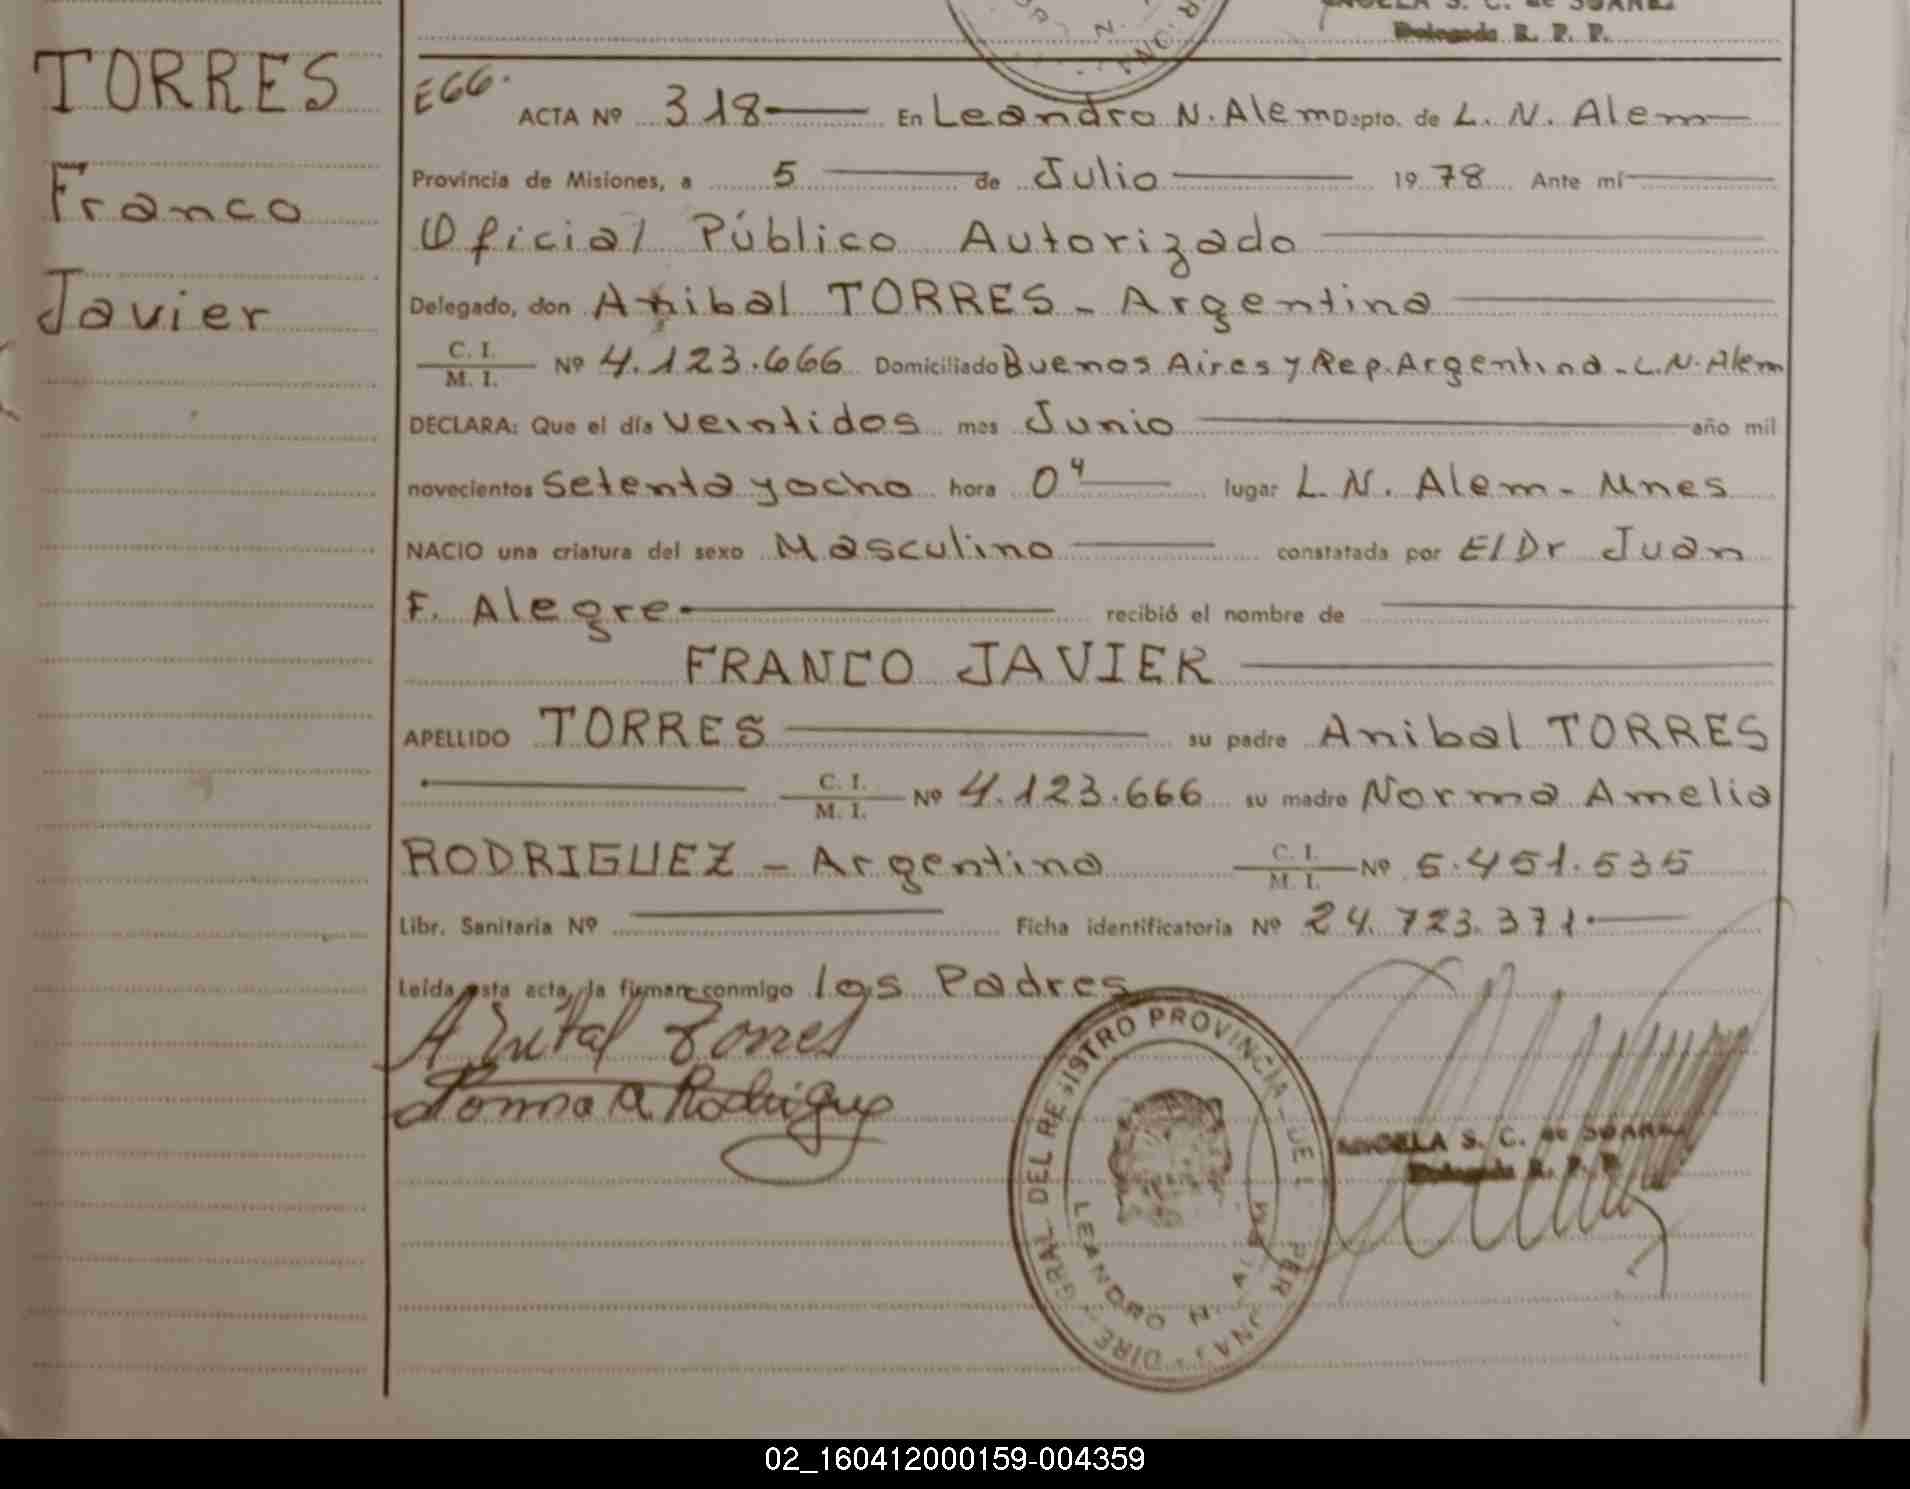 ANGELA S. C. de SUAREZ
Delegada R. P. P.
TORRES
Franco
Javier
E66.
ACTA Nº 318 En Leandro N. Alem Dpto. de L. N. Alem
Provincia de Misiones, a 5 de Julio 19 78 Ante mí
Oficial Público Autorizado
Delegado, don Anibal TORRES - Argentino
C. I.
M. I. Nº 4.123.666 Domiciliado Buenos Aires y Rep. Argentina - L.N. Alem
DECLARA: Que el día veintidos mes Junio año mil
novecientos setenta y ocho hora 0⁴ lugar L. N. Alem - Mnes
NACIO una criatura del sexo Masculino constatada por El Dr Juan
F. Alegre recibió el nombre de
FRANCO JAVIER
APELLIDO TORRES su padre Anibal TORRES
C. I.
M. I. Nº 4.123.666 su madre Norma Amelia
RODRIGUEZ - Argentina C. I.
M. I. Nº 5.451.535
Libr. Sanitaria Nº Ficha identificatoria Nº 24.723.371
Leída esta acta, la firman conmigo los Padres
Anibal Torres
Norma A Rodriguez
GRAL DEL REGISTRO PROVINCIAL DE
LEANDRO N. ALEM
ANGELA S. C. de SUAREZ
Delegada R. P. P.
02_160412000159-004359